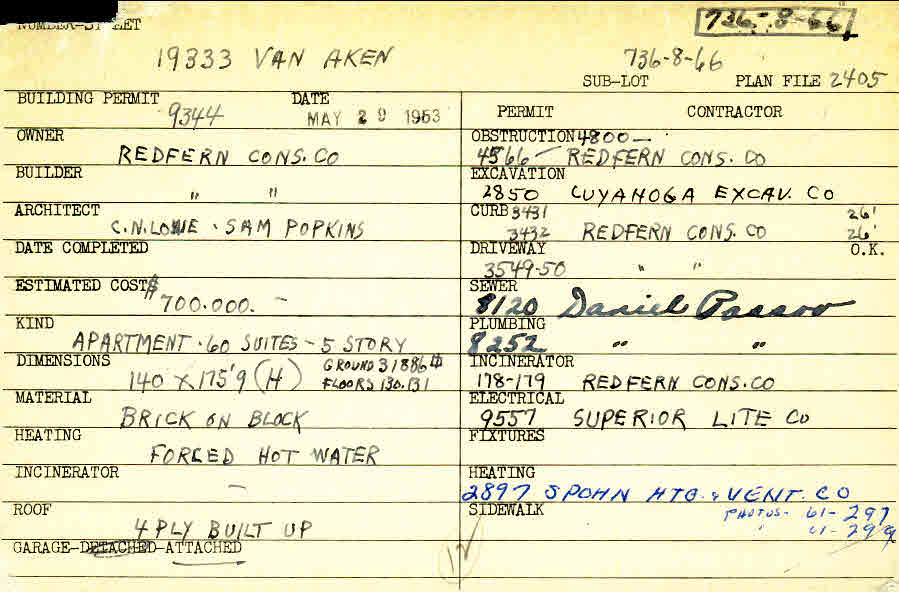 736-8-66
NUMBER-STREET
19333 VAN AKEN
736-8-66
SUB-LOT PLAN FILE 2405
BUILDING PERMIT 9344 DATE MAY 29 1953
PERMIT CONTRACTOR
OWNER REDFERN CONS. CO
OBSTRUCTION 4800 —
4566 — REDFERN CONS. CO
BUILDER " "
EXCAVATION
2850 CUYAHOGA EXCAV. CO
ARCHITECT
C.N. LOWE · SAM POPKINS
CURB 3431 26'
3432 REDFERN CONS. CO 26'
DATE COMPLETED
DRIVEWAY O.K.
3549-50 " "
ESTIMATED COST $
700.000. —
SEWER
8120 Daniel
KIND
APARTMENT · 60 SUITES - 5 STORY
PLUMBING
8252 " "
DIMENSIONS
140 X 175'9 (H) GROUND 31886
FLOORS 130.131
INCINERATOR
178-179 REDFERN CONS. CO
MATERIAL
BRICK ON BLOCK
ELECTRICAL
9557 SUPERIOR LITE CO
HEATING
FORCED HOT WATER
FIXTURES
INCINERATOR
—
HEATING
2897 SPOHN HTG. & VENT. CO
ROOF
4 PLY BUILT UP
SIDEWALK PHOTOS - 61-297
" 61-299
GARAGE-DETACHED-ATTACHED
12